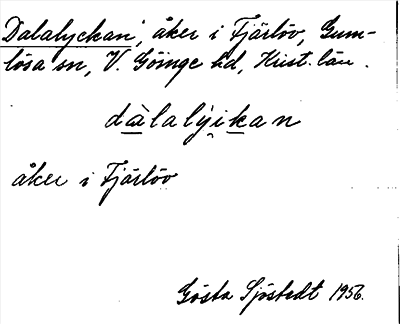 Dalalyckan, åker i Fjärlöv, Gum-
lösa sn, V. Göinge hd, Krist. län.
dàlalýikan
åker i Fjärlöv
Gösta Sjöstedt 1956.